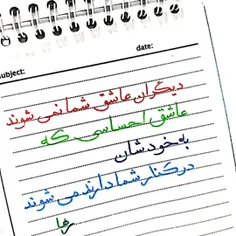 subject:
date:
دیگران عاشق شما نمی شوند
عاشق احساسی که
به خودشان
در کنار شما دارند می شوند
رها